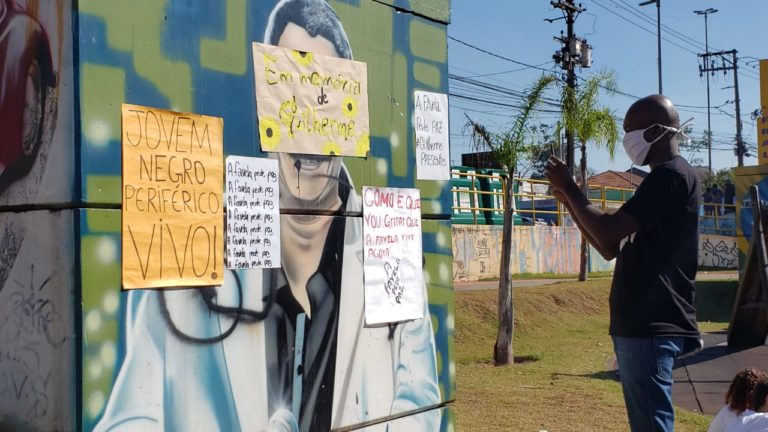 JOVEM
NEGRO
PERIFÉRICO
VIVO!
A favela pede paz
A favela pede paz
A favela pede paz
A favela pede paz
A favela pede paz
A favela pede paz
A favela pede paz
Em memória
de
Guilherme
A favela
Pede PAZ
#Guilherme
PRESENTE
COMO É QUE
VOU GRITAR QUE
A FAVELA VIVE
AGORA
FAVELA
PEDE
PAZ